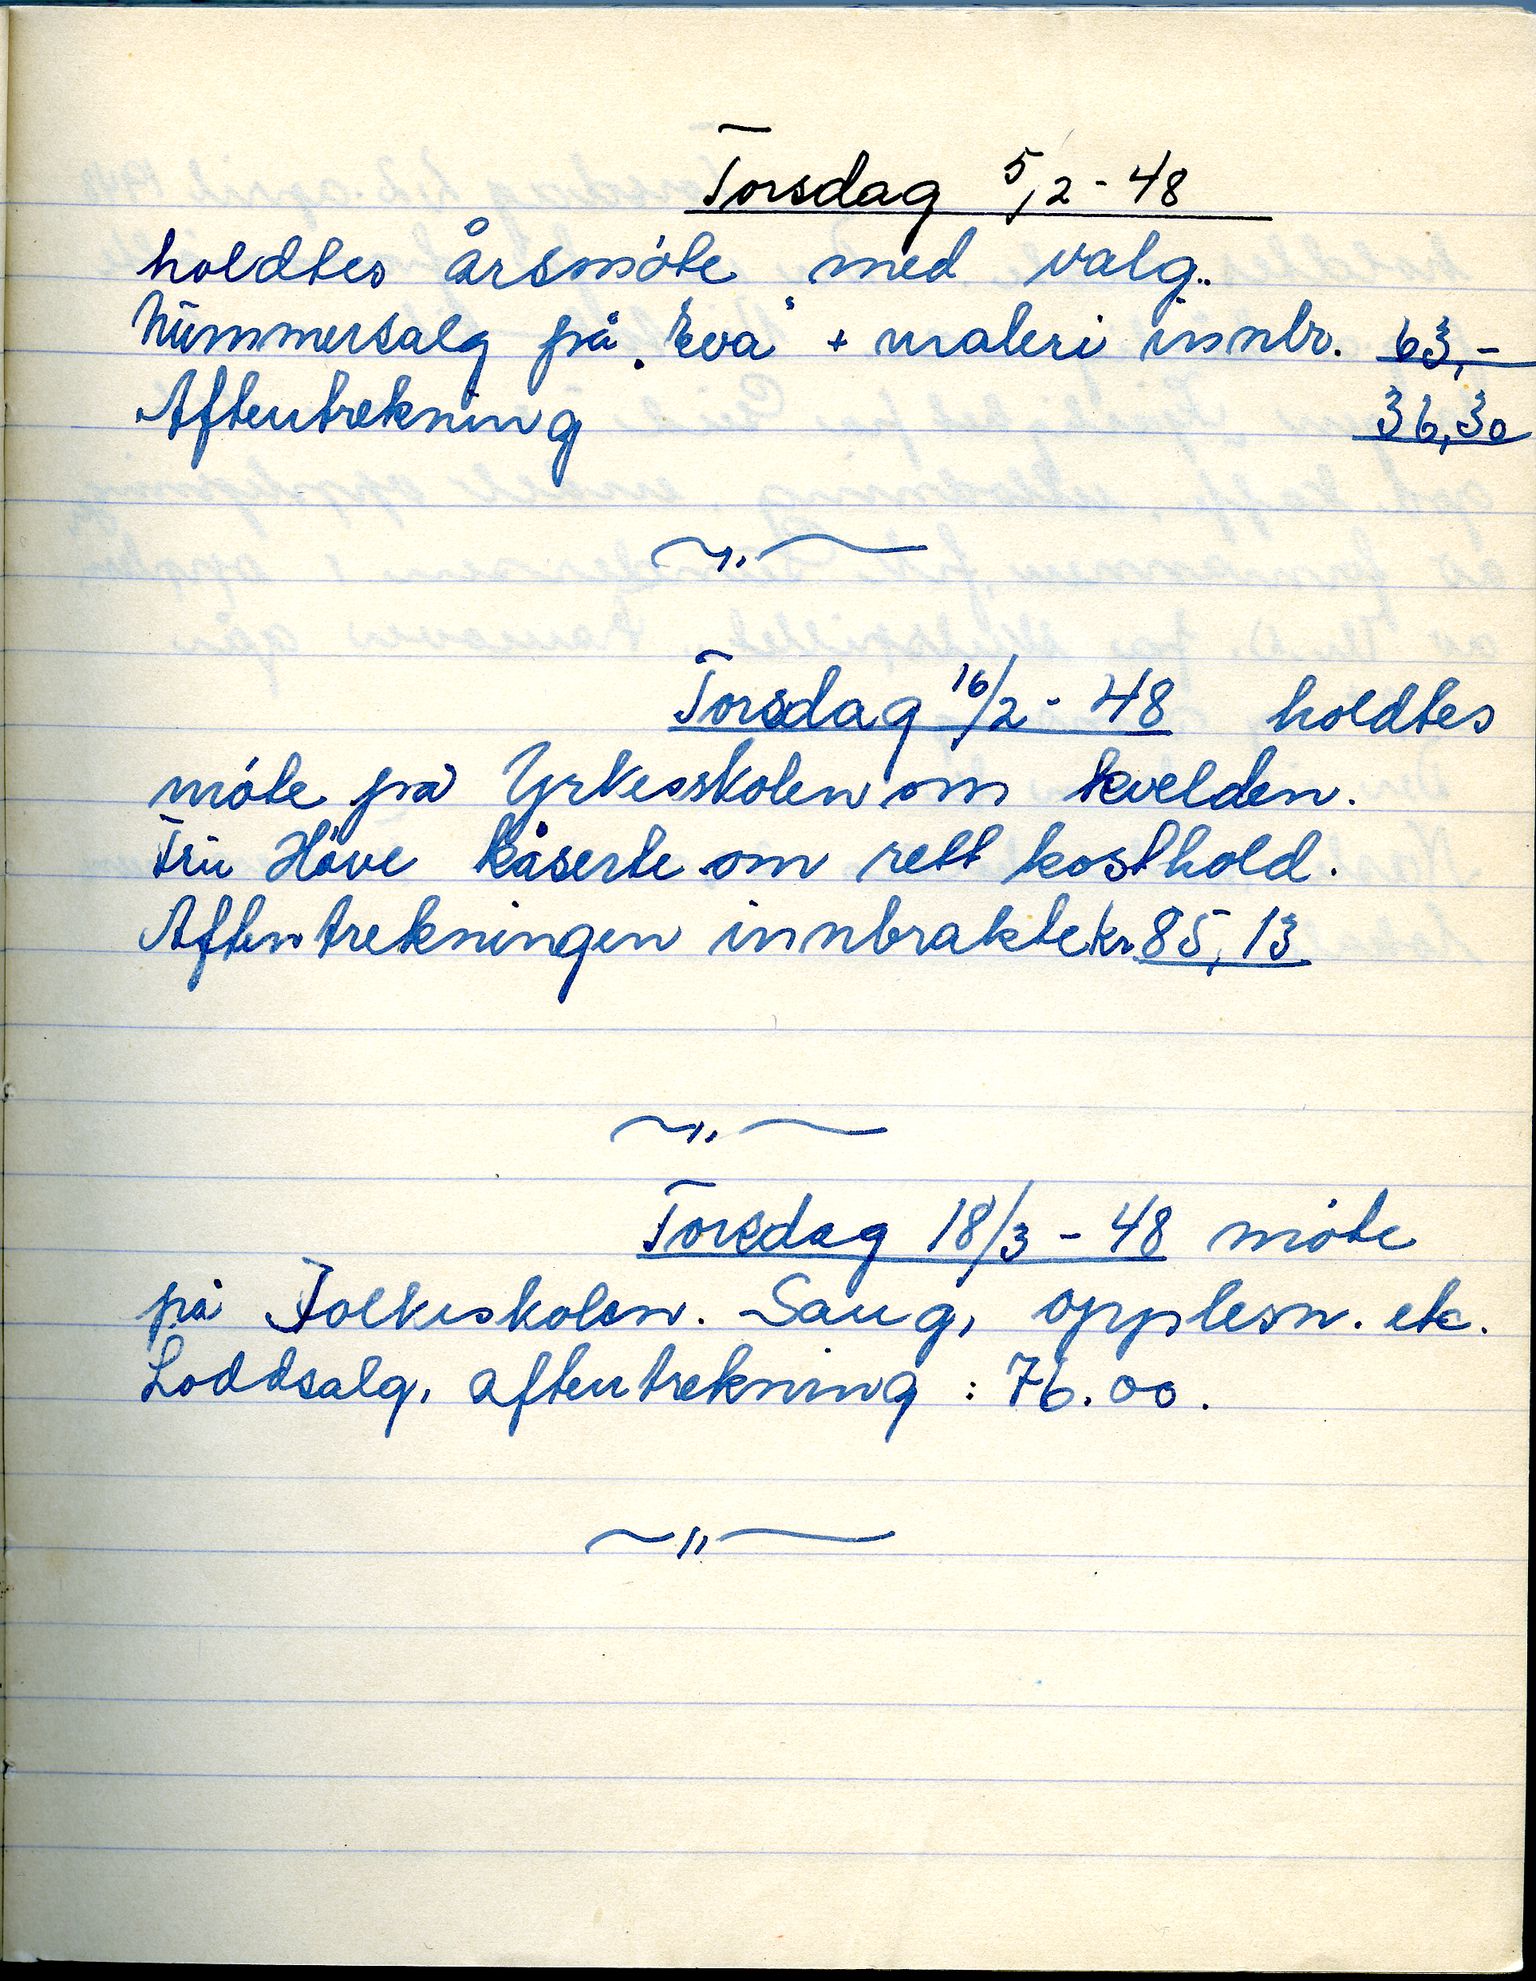 Torsdag 5/2 - 48
holdtes årsmöte med valg.
Nummersalg på "Eva" + maleri innbr. 63,-
Aftentrekning 36,30
Torsdag 16/2 - 48 holdtes
möte på Yrkesskolen om kvelden.
Fru Höve kåserte om rett kosthold.
Aftentrekningen innbrakte kr. 85,13
Torsdag 18/3 - 48 möte
på Folkeskolen. Sang, opplesn. etc.
Loddsalg, aftentrekning : 76.00.